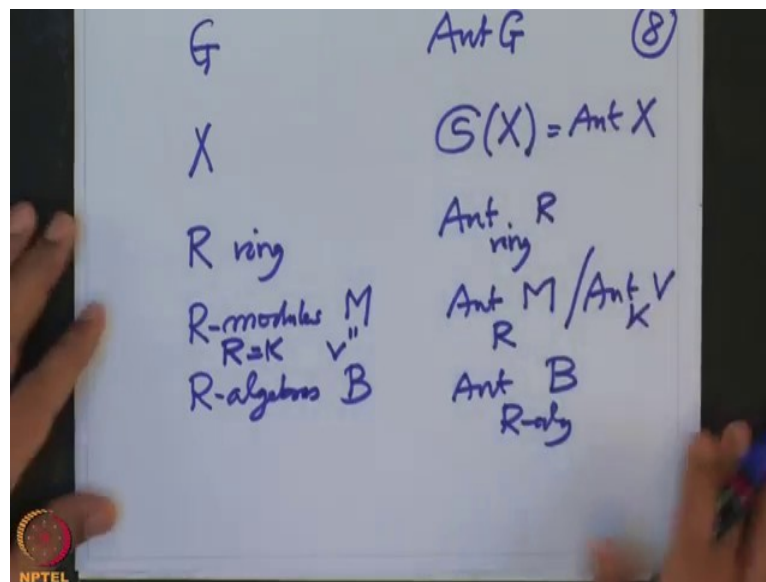 G Aut G ⑧
X 𝔖(X) = Aut X
R ring Aut_ring R
R-modules M Aut_R M / Aut_K V
R=K V"
R-algebras B Aut_R-alg B
NPTEL